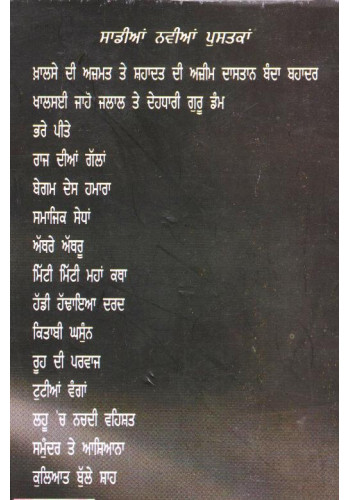 ਸਾਡੀਆਂ ਨਵੀਆਂ ਪੁਸਤਕਾਂ
ਖ਼ਾਲਸੇ ਦੀ ਅਜ਼ਮਤ ਤੇ ਸ਼ਹਾਦਤ ਦੀ ਅਜ਼ੀਮ ਦਾਸਤਾਨ ਬੰਦਾ ਬਹਾਦਰ
ਖਾਲਸਈ ਜਾਹੋ ਜਲਾਲ ਤੇ ਦੇਹਧਾਰੀ ਗੁਰੂ ਡੰਮ
ਭਰੇ ਪੀਤੇ
ਰਾਜ ਦੀਆਂ ਗੱਲਾਂ
ਬੇਗਮ ਦੇਸ ਹਮਾਰਾ
ਸਮਾਜਿਕ ਸੇਧਾਂ
ਅੱਥਰੇ ਅੱਥਰੂ
ਮਿੱਟੀ ਮਿੱਟੀ ਮਹਾਂ ਕਥਾ
ਹੱਡੀ ਹੱਢਾਇਆ ਦਰਦ
ਕਿਤਾਬੀ ਘਸੁੰਨ
ਰੂਹ ਦੀ ਪਰਵਾਜ
ਟੁਟੀਆਂ ਵੰਗਾਂ
ਲਹੂ 'ਚ ਨਚਦੀ ਵਹਿਸ਼ਤ
ਸਮੁੰਦਰ ਤੇ ਆਸ਼ਿਆਨਾ
ਕੁਲਿਆਤ ਬੁੱਲੇ ਸ਼ਾਹ